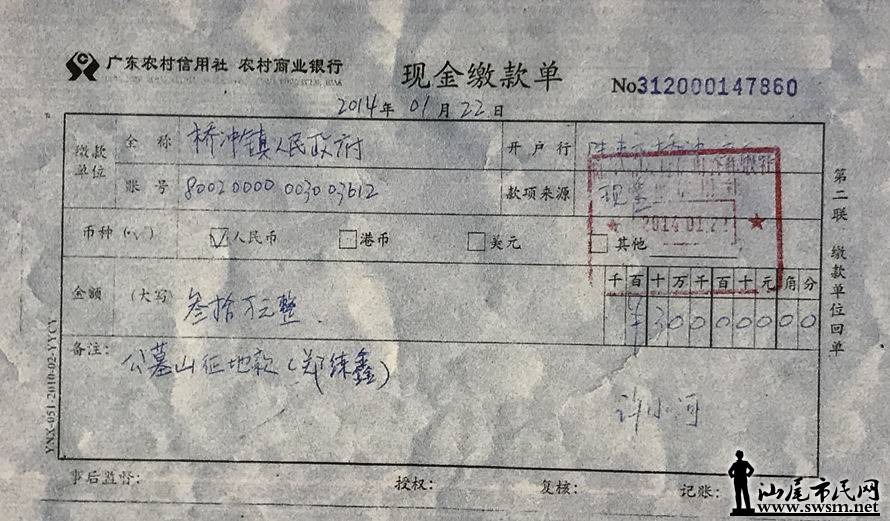 广东农村信用社 农村商业银行 现金缴款单 No312000147860
2014年01月22日
缴款单位 全称 桥冲镇人民政府 开户行
账号 80020000003003612 款项来源 现金
币种(√) ☑人民币 □港币 □美元 □其他
2014.01.22
金额 (大写) 叁拾万元整 千百十万千百十元角分
¥30000000
备注: 公墓山征地款(郑练鑫)
许小河
事后监督: 授权: 复核: 记账:
第二联 缴款单位回单
YNX-051-2010-02-YYCY
汕尾市民网
www.swsm.net